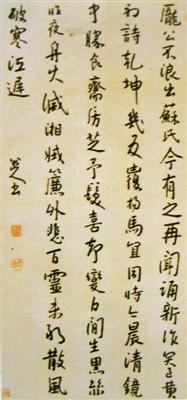 龐公不浪出蘇氏今有之再聞誦新作突過黃
初詩乾坤幾反覆楊馬宜同時今晨清鏡
中勝食齋房芝予髮喜却變白間生黑絲
昨夜舟火滅湘娥簾外悲百靈未敢散風
破寒江遲
八大山人書